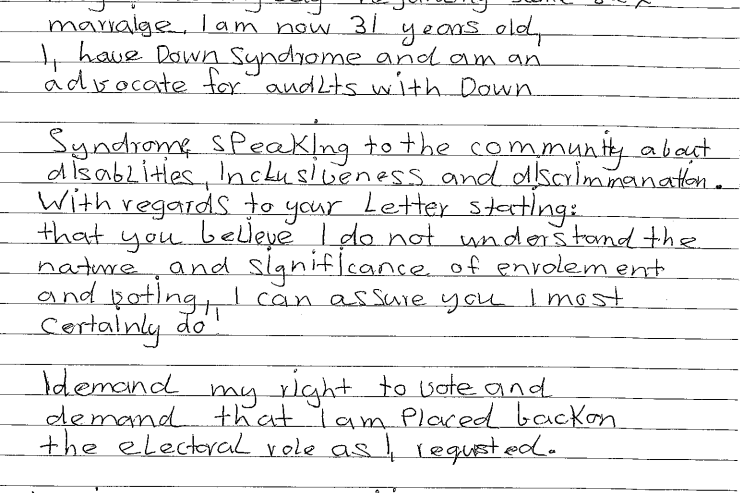 marraige. I am now 31 years old,
I, have Down Syndrome and am an
advocate for audlts with Down
Syndrome speaking to the community about
disablities, Inclusiveness and discrimmanation.
With regards to your Letter stating:
that you believe I do not understand the
nature and significance of enrolement
and voting, I can assure you I most
Certainly do"!
I demand my right to vote and
demand that I am Placed back on
the electoral role as I requsted.